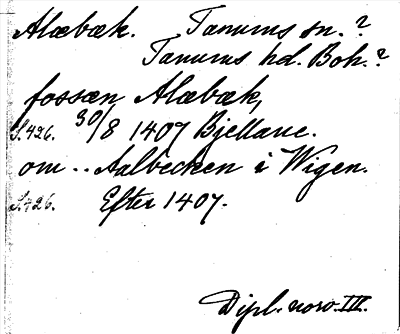 Alabæk. Tanums sn.?
Tanums hd. Boh.?
fossen Alabæk,
S.426. 30/8 1407 Bjellane.
om .. Aalbecken i Wigen.
S.426. Efter 1407.
Dipl. norv. III.